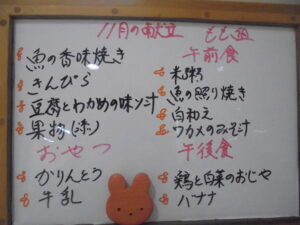 11月の献立 もも組
魚の香味焼き
きんぴら
豆腐とわかめの味ソ汁
果物(柿)
おやつ
かりんとう
牛乳
午前食
米粥
魚の照り焼き
白和え
ワカメのみそ汁
午後食
鶏と白菜のおじや
バナナ